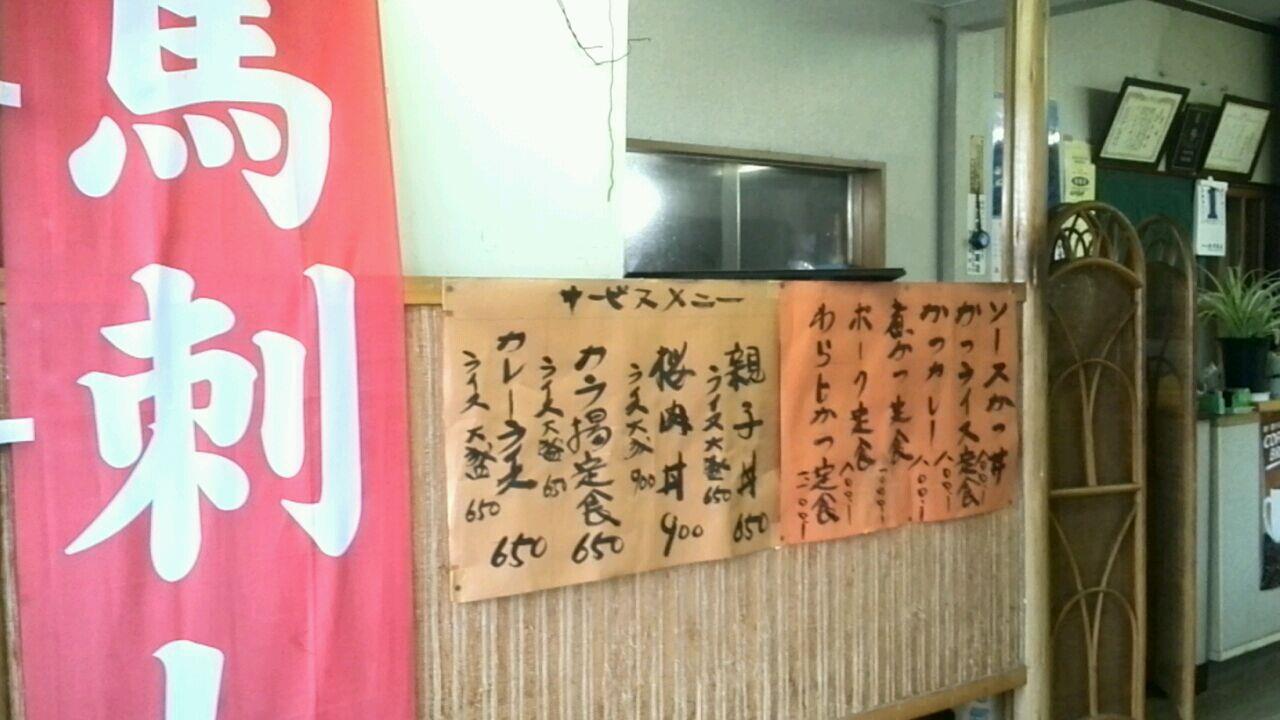 馬刺し
サービスメニー
親子丼 650
ライス大盛 650
桜肉丼 900
ライス大盛 900
カラ揚定食 650
ライス大盛 650
カレーライス 650
ライス大盛 650
ソースかつ丼
かつライス定食
かつカレー
煮かつ定食
ポーク定食
わらじかつ定食
1